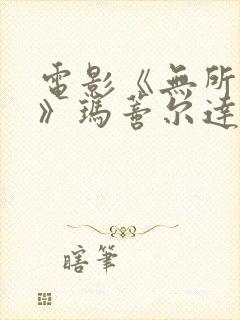 電影《無所
》瑪蒂尔達
瞎筆